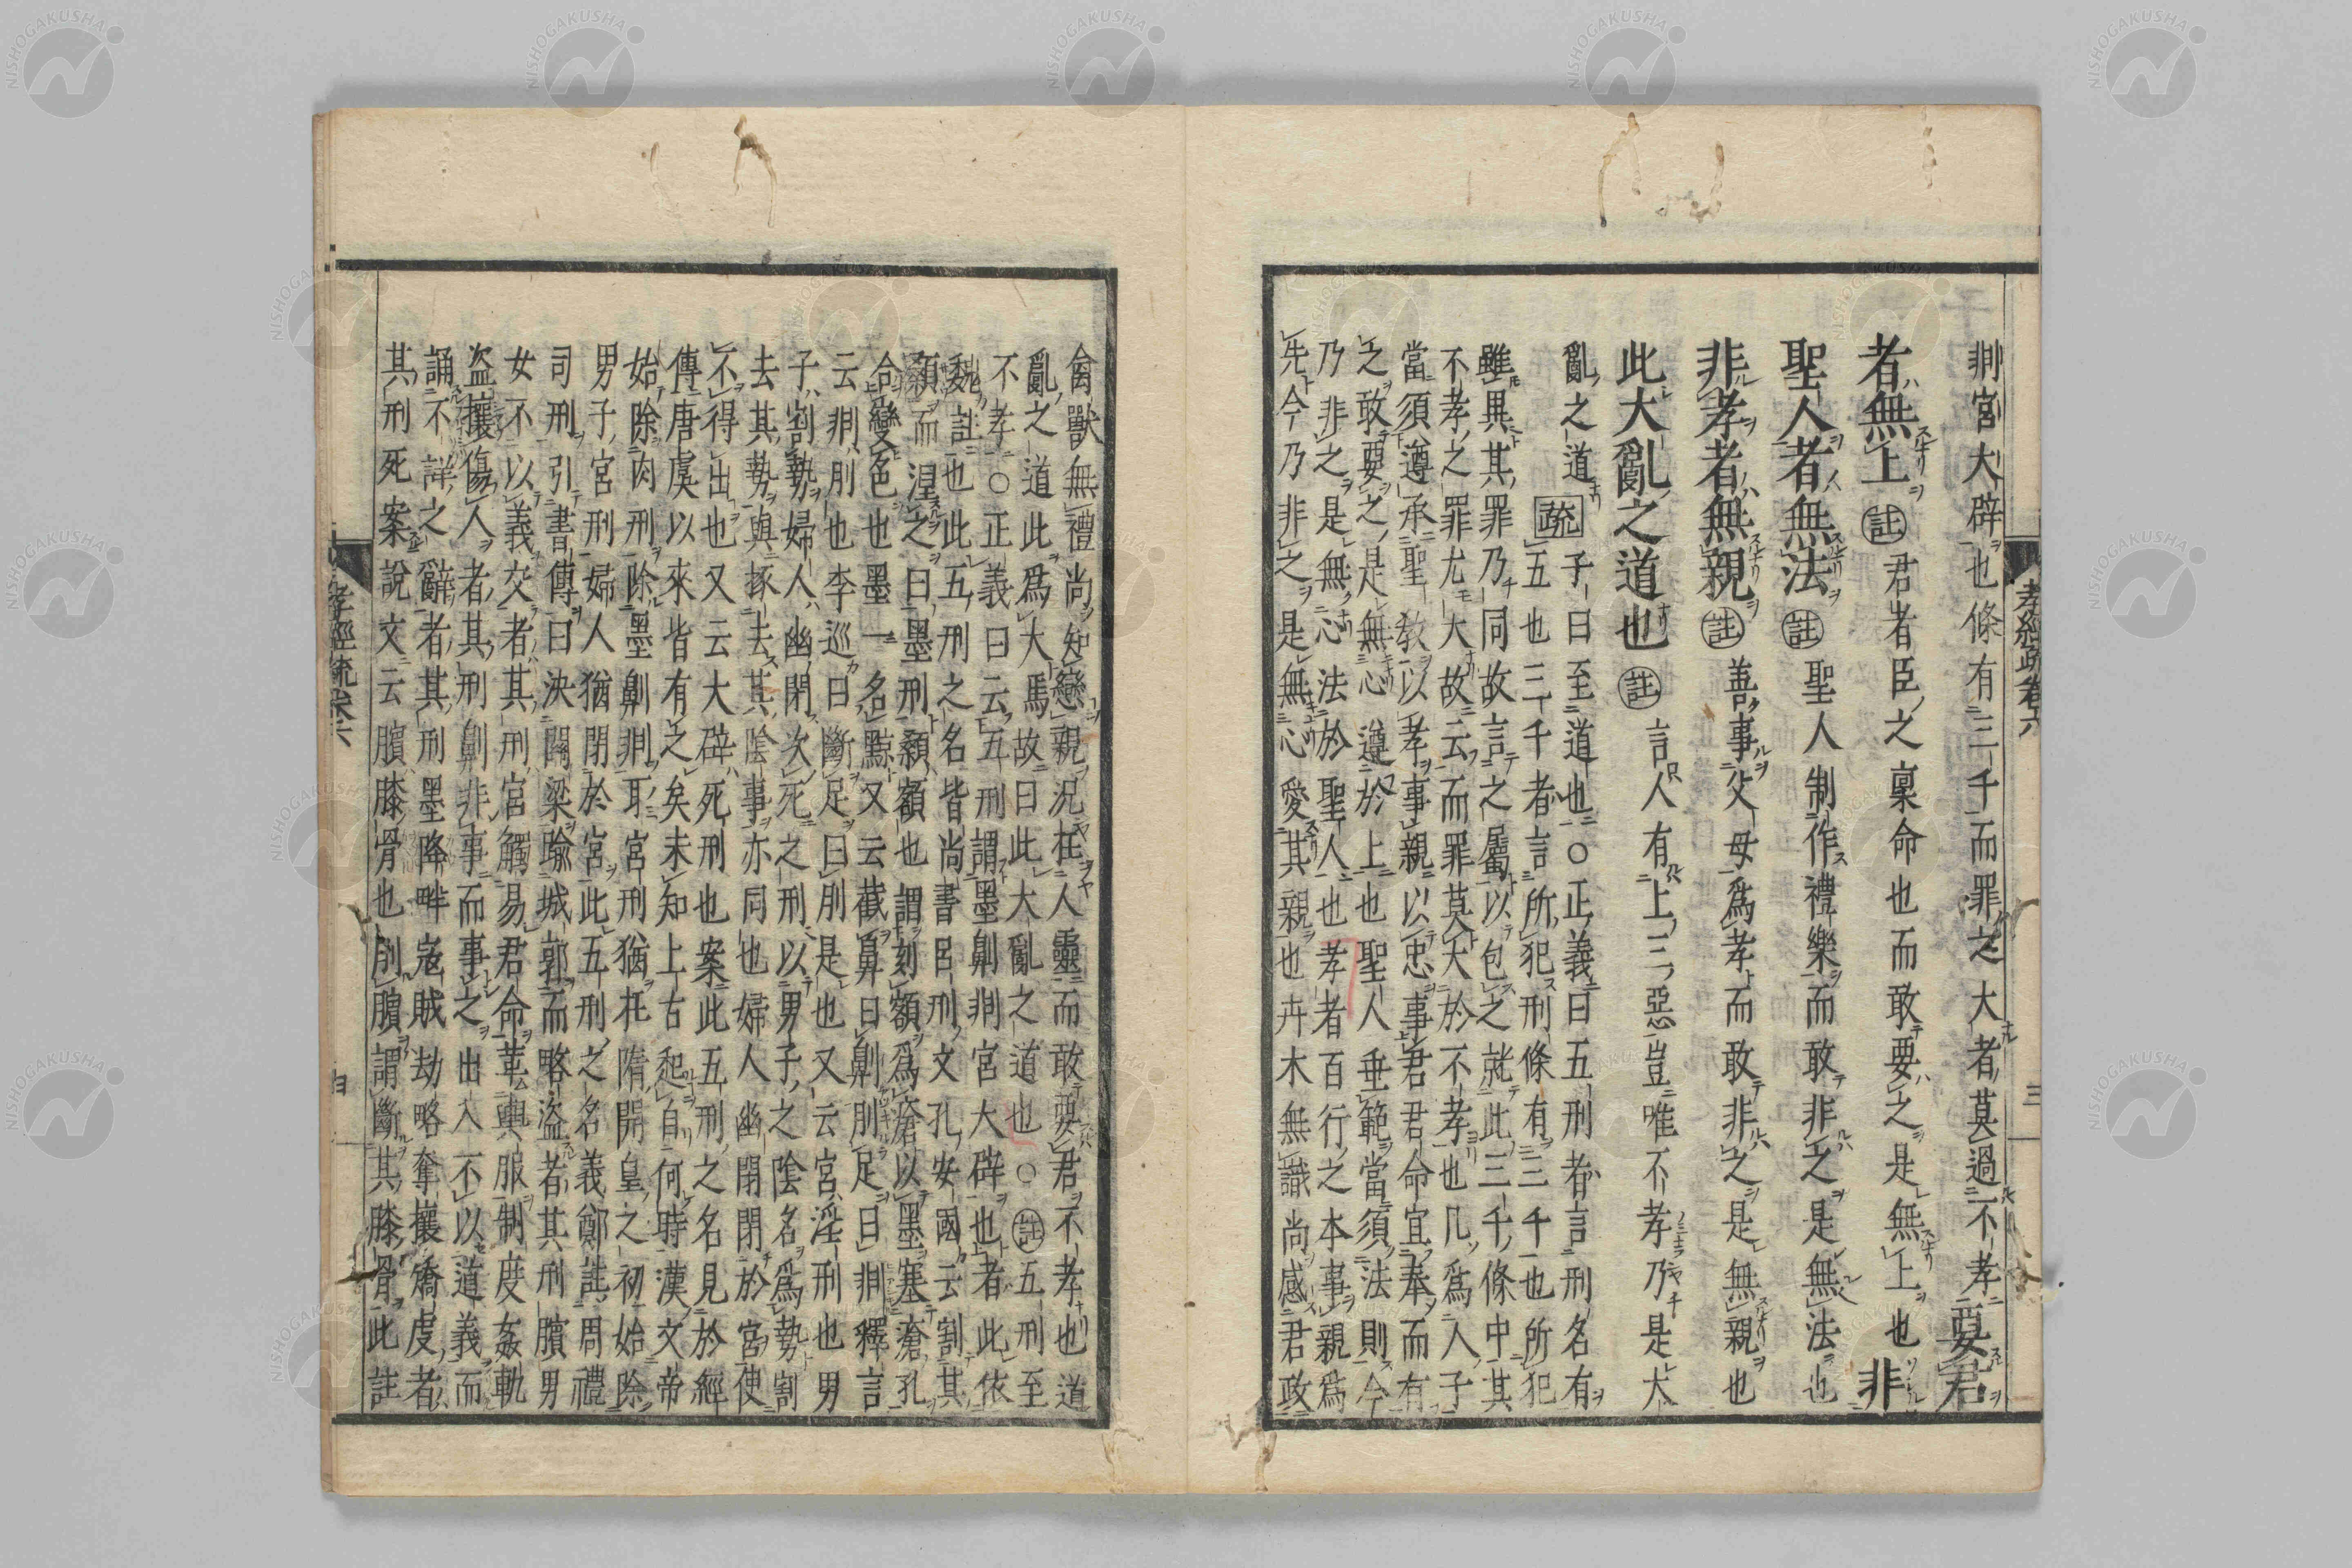 孝經疏卷六 三
剕宮大辟也條有三千而罪之大者莫過不孝 要君
者無上 註 君者臣之稟命也而敢要之是無上也 非
聖人者無法 註 聖人制作禮樂而敢非之是無法也
非孝者無親 註 善事父母爲孝而敢非之是無親也
此大亂之道也 註 言人有上三惡豈唯不孝乃是大
亂之道 疏 子曰至道也○正義曰五刑者言刑名有
五也三千者言所犯刑條有三千也所犯
雖異其罪乃同故言之屬以包之就此三千條中其
不孝之罪尤大故云而罪莫大於不孝也凡爲人子
當須遵承聖教以孝事親以忠事君君命宜奉而有
之敢要之是無心遵於上也聖人垂範當須法則今
乃非之是無心法於聖人也孝者百行之本事親爲
先今乃非之是無心愛其親也卉木無識尚感君政
禽獸無禮尚知戀親況在人靈而敢要君不孝也道
亂之道此爲大馬故曰此大亂之道也○註五刑至
不孝○正義曰云五刑謂墨劓剕宮大辟也者此依
魏註也此五刑之名皆尚書呂刑文孔安國云割其
顙而涅之曰墨刑顙額也謂刻額爲瘡以墨塞瘡孔
合變色也墨一名黥又云截鼻曰劓刖足曰剕釋言
云剕刖也李巡曰斷足曰刖是也又云宮淫刑也男
子割勢婦人幽閉次死之刑以男子之陰名爲勢割
去其勢與椓去其陰事亦同也婦人幽閉閉於宮使
不得出也又云大辟死刑也案此五刑之名見於經
傳唐虞以來皆有之矣未知上古起自何時漢文帝
始除肉刑除墨劓剕耳宮刑猶在隋開皇之初始除
男子宮刑婦人猶閉於宮此五刑之名義鄭註周禮
司刑引書傳曰決關梁踰城郭而略盜者其刑臏男
女不以義交者其刑宮觸易君命革輿服制度姦軌
盜攘傷人者其刑劓非事而事之出入不以道義而
誦不詳之辭者其刑墨降畔寇賊劫略奪攘矯虔者
其刑死案說文云臏膝骨也刖臏謂斷其膝骨此註